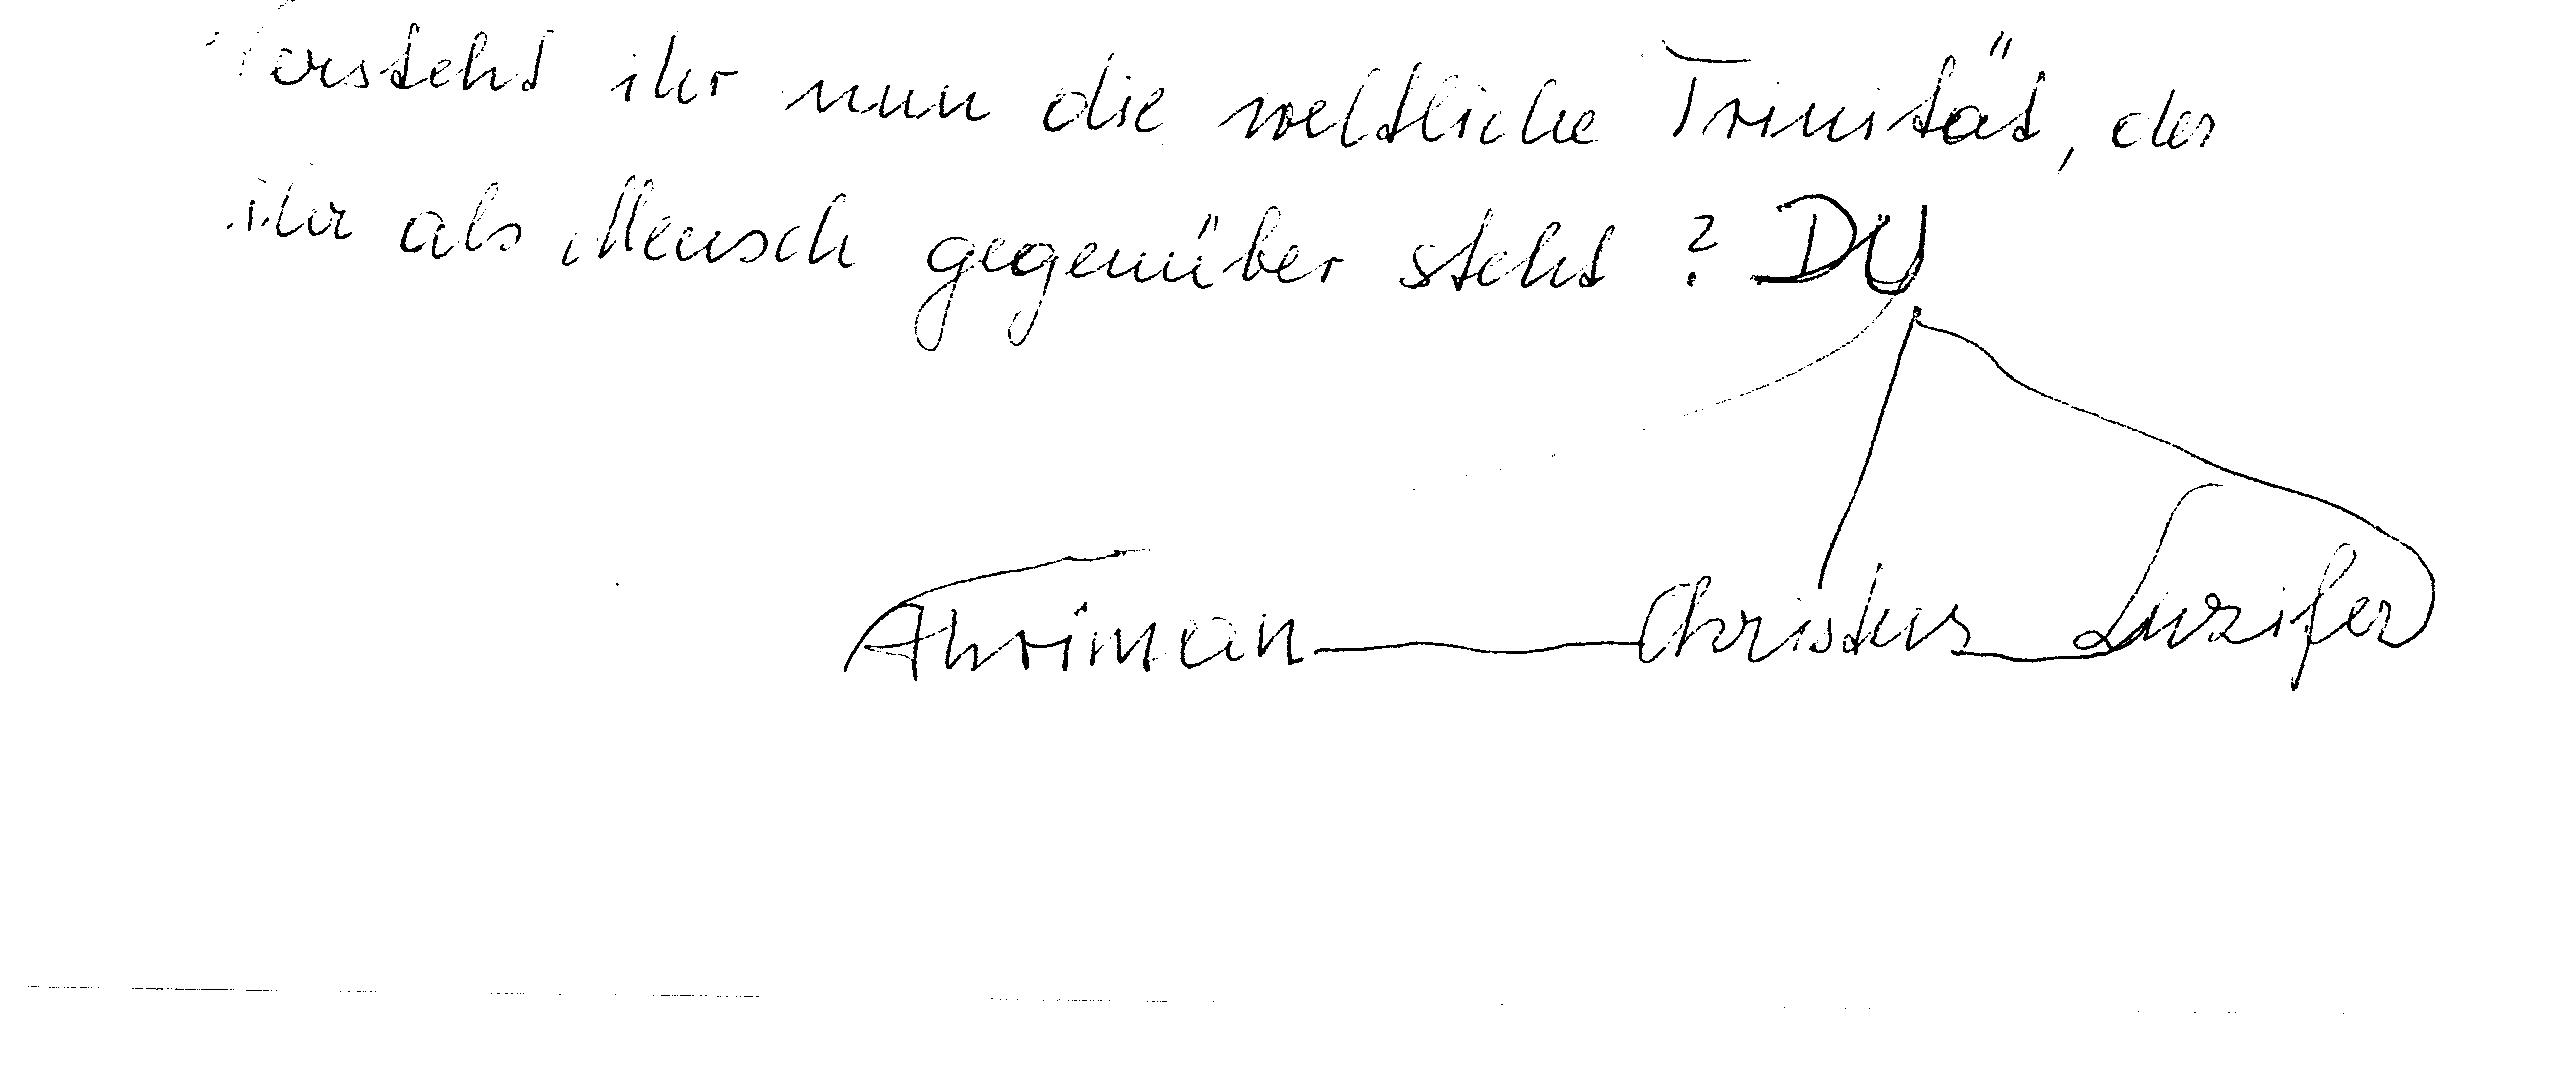 Versteht ihr nun die weltliche Trinität, der
ihr als Mensch gegenüber steht? DU
Ahriman Christus Luzifer